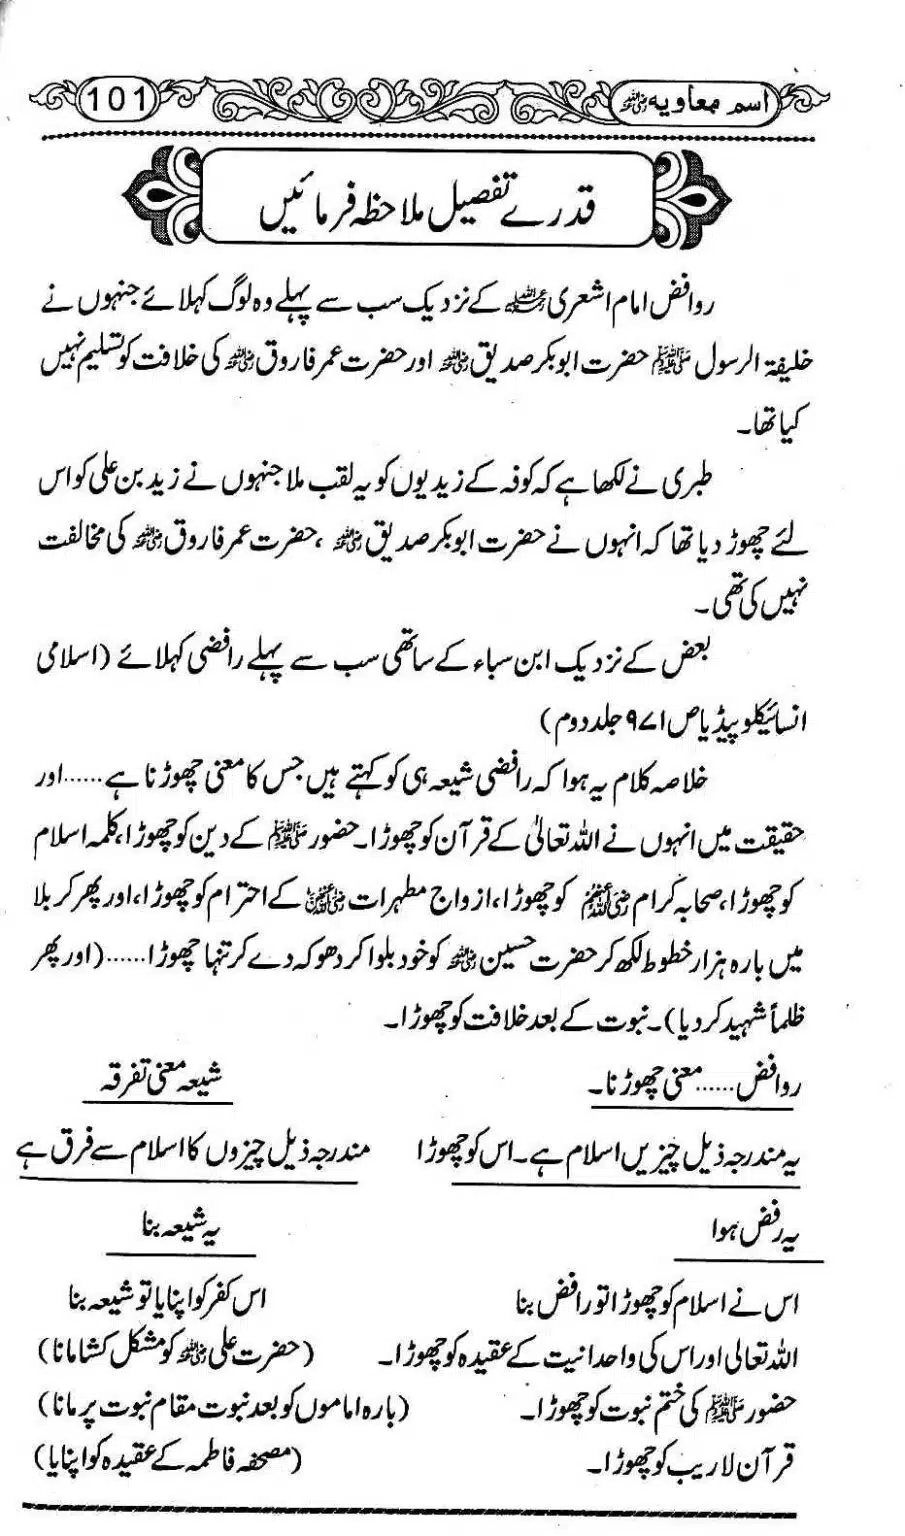 اسم معاویہ رضی اللہ عنہ 101
قدرے تفصیل ملاحظہ فرمائیں
روافض امام اشعری رحمۃ اللہ علیہ کے نزدیک سب سے پہلے وہ لوگ کہلائے جنہوں نے
خلیفۃ الرسول ﷺ حضرت ابوبکر صدیق رضی اللہ عنہ اور حضرت عمر فاروق رضی اللہ عنہ کی خلافت کو تسلیم نہیں
کیا تھا۔
طبری نے لکھا ہے کہ کوفہ کے زیدیوں کو یہ لقب ملا جنہوں نے زید بن علی کو اس
لئے چھوڑ دیا تھا کہ انہوں نے حضرت ابوبکر صدیق رضی اللہ عنہ ، حضرت عمر فاروق رضی اللہ عنہ کی مخالفت
نہیں کی تھی۔
بعض کے نزدیک ابن سباء کے ساتھی سب سے پہلے رافضی کہلائے (اسلامی
انسائیکلوپیڈیا ص ۹۷۱ جلد دوم)
خلاصہ کلام یہ ہوا کہ رافضی شیعہ ہی کو کہتے ہیں جس کا معنی چھوڑنا ہے......اور
حقیقت میں انہوں نے اللہ تعالیٰ کے قرآن کو چھوڑا۔ حضور ﷺ کے دین کو چھوڑا، کلمہ اسلام
کو چھوڑا، صحابہ کرام رضی اللہ عنہم کو چھوڑا، ازواج مطہرات رضی اللہ عنہن کے احترام کو چھوڑا، اور پھر کربلا
میں بارہ ہزار خطوط لکھ کر حضرت حسین رضی اللہ عنہ کو خود بلوا کر دھوکہ دے کر تنہا چھوڑا......(اور پھر
ظلماً شہید کر دیا)۔ نبوت کے بعد خلافت کو چھوڑا۔
روافض......معنی چھوڑنا۔ شیعہ معنی تفرقہ
یہ مندرجہ ذیل چیزیں اسلام ہے۔ اس کو چھوڑا مندرجہ ذیل چیزوں کا اسلام سے فرق ہے
یہ رفض ہوا یہ شیعہ بنا
اس نے اسلام کو چھوڑا تو رافض بنا اس کفر کو اپنایا تو شیعہ بنا
اللہ تعالی اور اس کی واحدانیت کے عقیدہ کو چھوڑا۔ (حضرت علی رضی اللہ عنہ کو مشکل کشا مانا)
حضور ﷺ کی ختم نبوت کو چھوڑا۔ (بارہ اماموں کو بعد نبوت مقام نبوت پر مانا)
قرآن لاریب کو چھوڑا۔ (مصحفہ فاطمہ کے عقیدہ کو اپنایا)